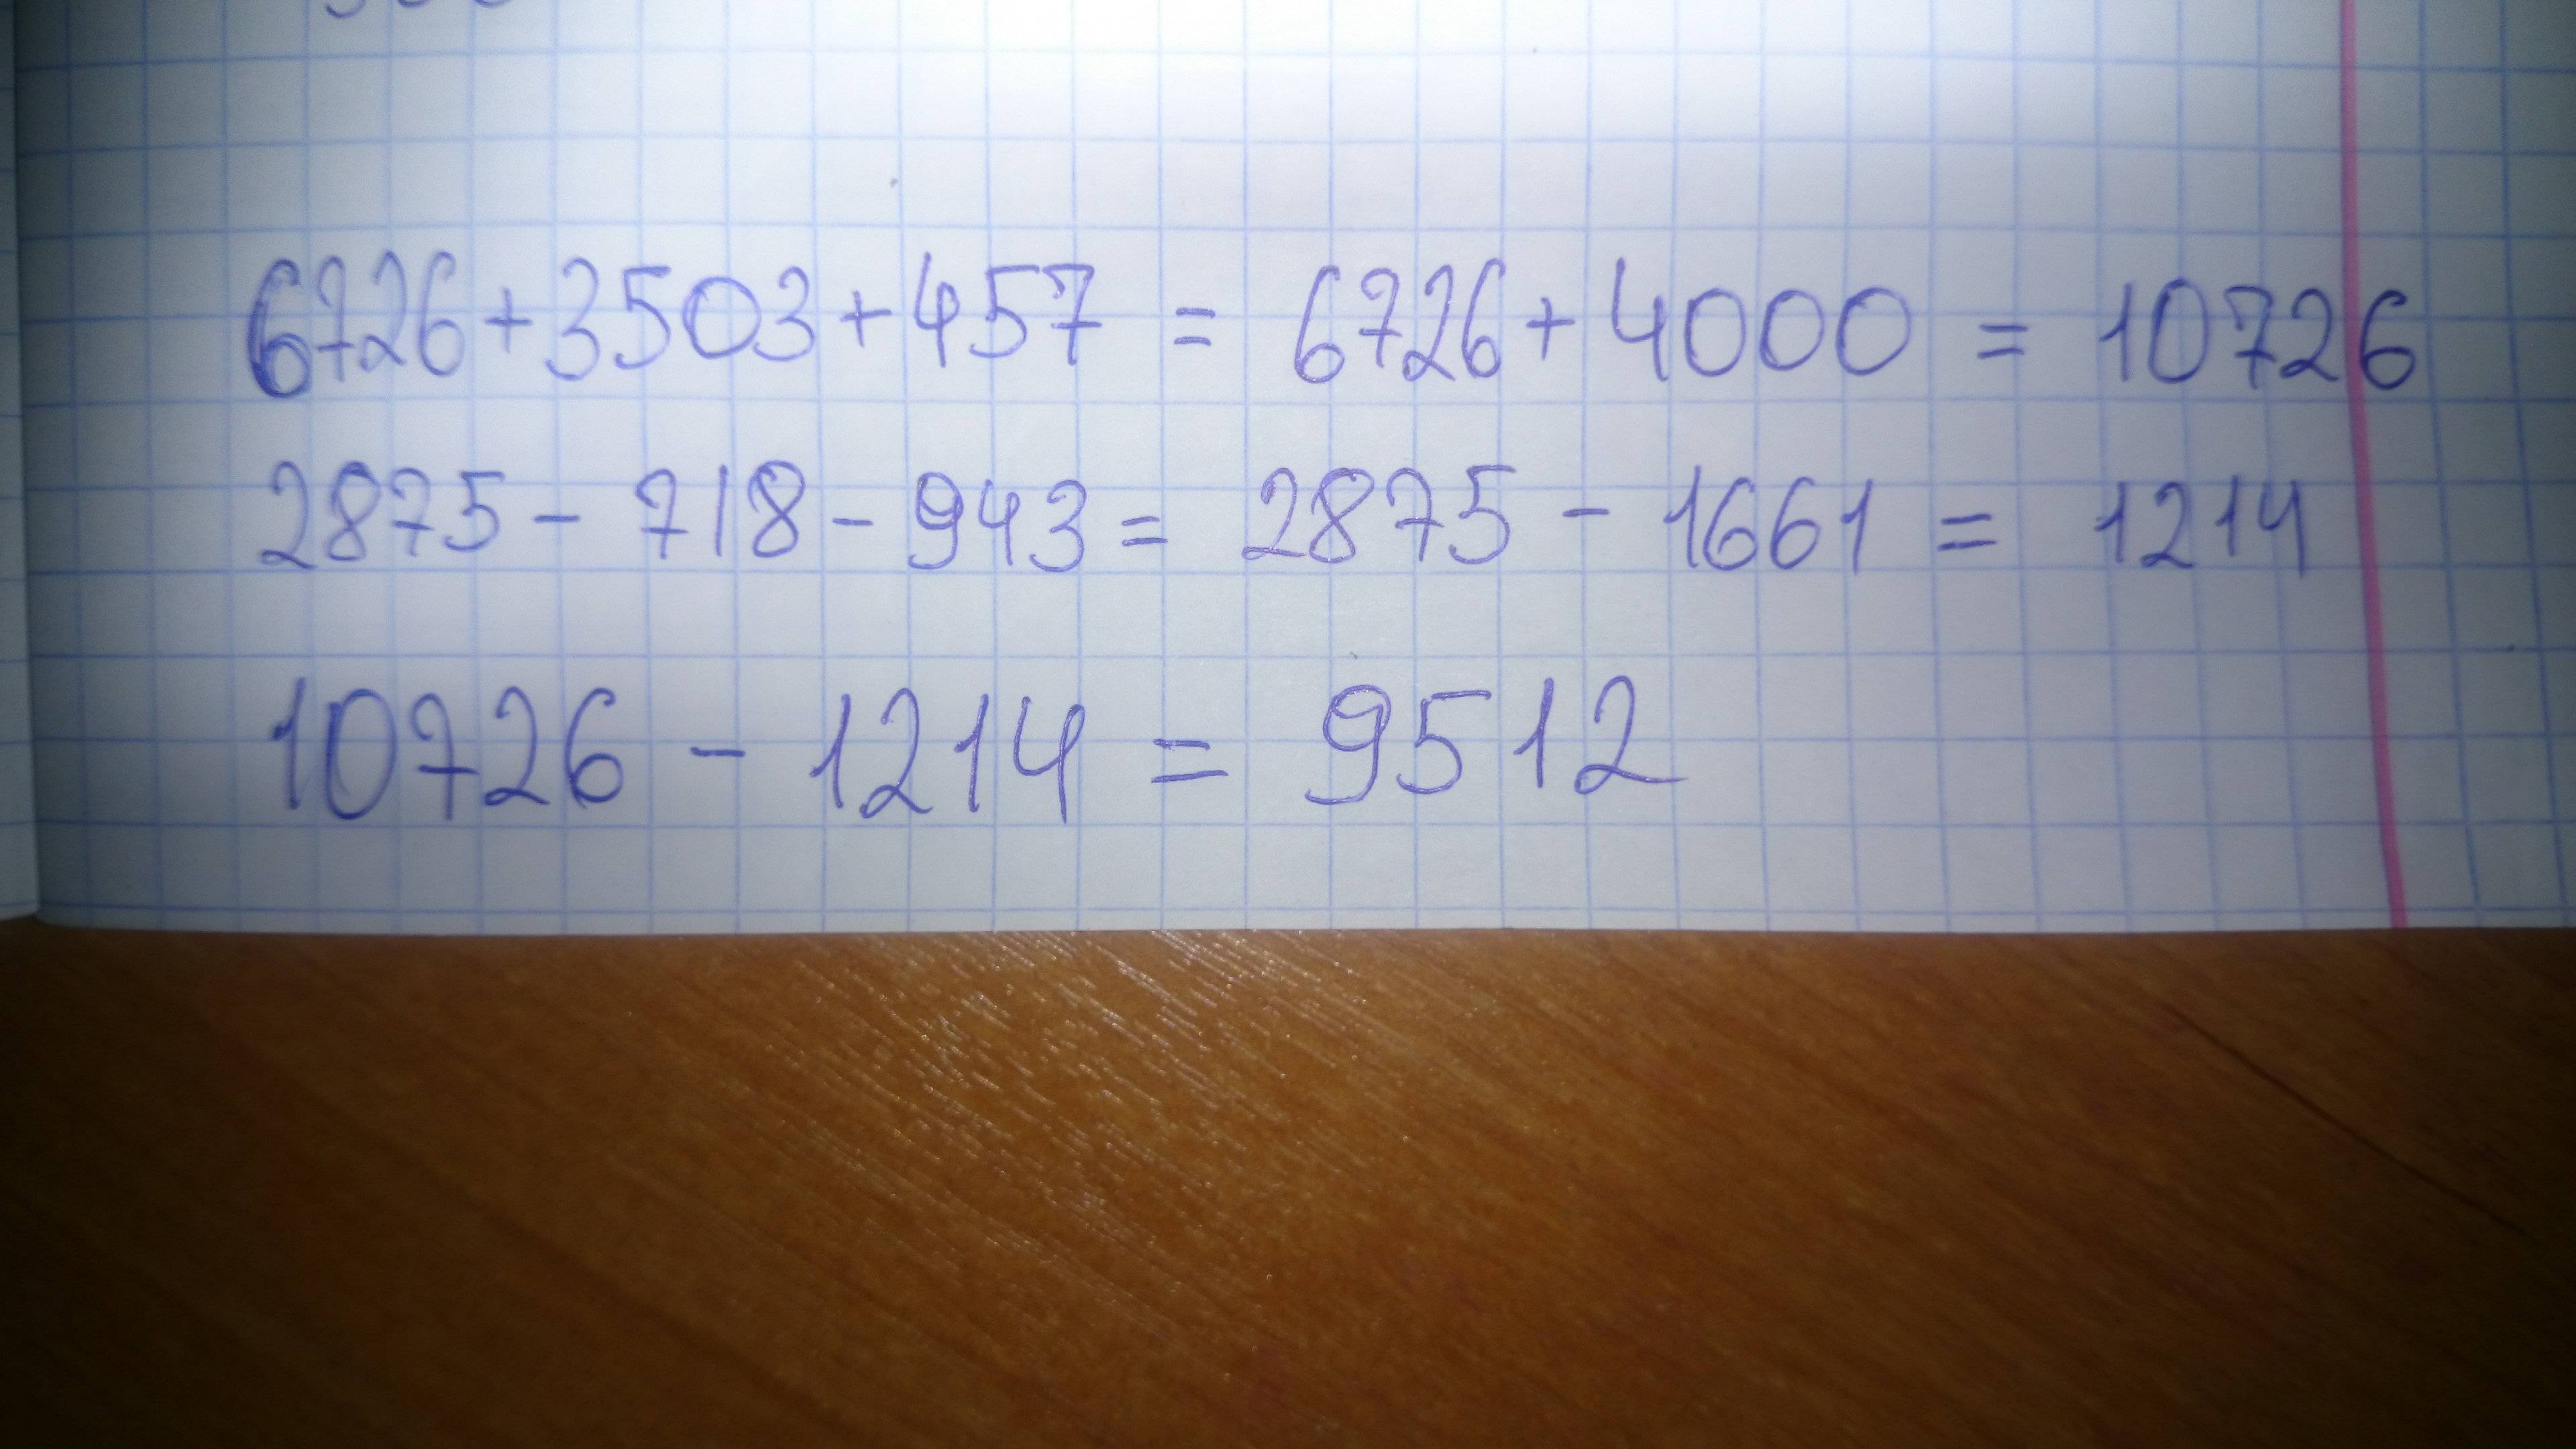 6726+3503+457 = 6726+4000 = 10726
2875 - 718 - 943 = 2875 - 1661 = 1214
10726 - 1214 = 9512